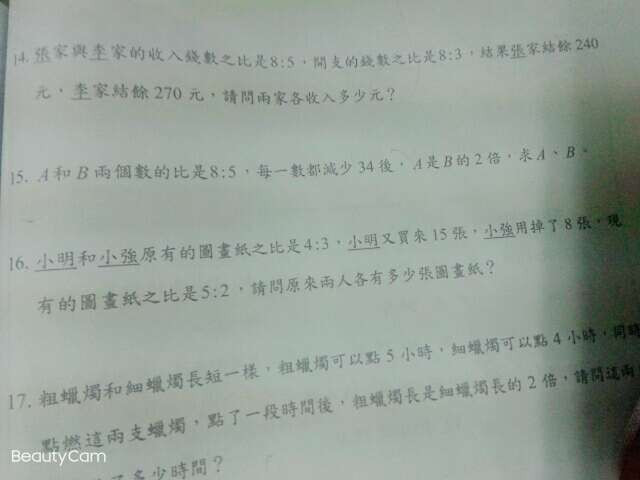 14. 張家與李家的收入錢數之比是8:5，開支的錢數之比是8:3，結果張家結餘240
元，李家結餘270元，請問兩家各收入多少元？
15. A和B兩個數的比是8:5，每一數都減少34後，A是B的2倍，求A、B。
16. 小明和小強原有的圖畫紙之比是4:3，小明又買來15張，小強用掉了8張，現
有的圖畫紙之比是5:2，請問原來兩人各有多少張圖畫紙？
17. 粗蠟燭和細蠟燭長短一樣，粗蠟燭可以點5小時，細蠟燭可以點4小時，同時
點燃這兩支蠟燭，點了一段時間後，粗蠟燭長是細蠟燭長的2倍，請問這兩
了多少時間？
BeautyCam